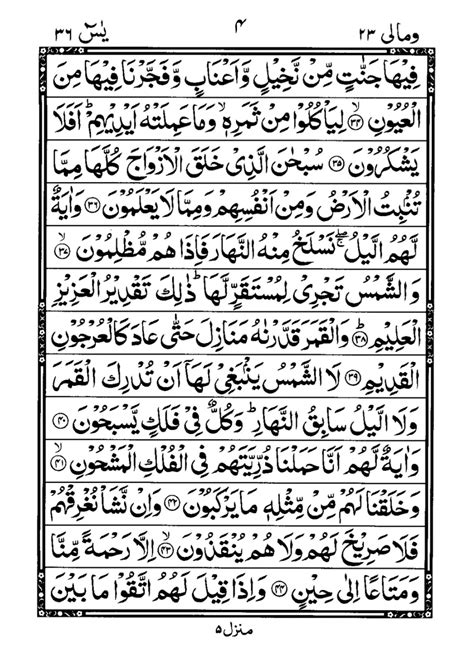 ومالی ۲۳ ۴ یٰسٓ ۳۶
فِيْهَا جَنّٰتٍ مِّنْ نَّخِيْلٍ وَّاَعْنَابٍ وَّفَجَّرْنَا فِيْهَا مِنَ
الْعُيُوْنِ ۙ‏﴿۳۴﴾ لِيَاْكُلُوْا مِنْ ثَمَرِهٖ ۙ وَمَا عَمِلَتْهُ اَيْدِيْهِمْ ؕ اَفَلَا
يَشْكُرُوْنَ ﴿۳۵﴾ سُبْحٰنَ الَّذِىْ خَلَقَ الْاَزْوَاجَ كُلَّهَا مِمَّا
تُنْۢبِتُ الْاَرْضُ وَمِنْ اَنْفُسِهِمْ وَمِمَّا لَا يَعْلَمُوْنَ ﴿۳۶﴾ وَاٰيَةٌ
لَّهُمُ الَّيْلُ ۖۚ نَسْلَخُ مِنْهُ النَّهَارَ فَاِذَا هُمْ مُّظْلِمُوْنَ ۙ﴿۳۷﴾
وَالشَّمْسُ تَجْرِىْ لِمُسْتَقَرٍّ لَّهَا ؕ ذٰلِكَ تَقْدِيْرُ الْعَزِيْزِ
الْعَلِيْمِ ؕ﴿۳۸﴾ وَالْقَمَرَ قَدَّرْنٰهُ مَنَازِلَ حَتّٰى عَادَ كَالْعُرْجُوْنِ
الْقَدِيْمِ ﴿۳۹﴾ لَا الشَّمْسُ يَنْۢبَغِىْ لَهَاۤ اَنْ تُدْرِكَ الْقَمَرَ
وَلَا الَّيْلُ سَابِقُ النَّهَارِ ؕ وَكُلٌّ فِىْ فَلَكٍ يَّسْبَحُوْنَ ﴿۴۰﴾
وَاٰيَةٌ لَّهُمْ اَنَّا حَمَلْنَا ذُرِّيَّتَهُمْ فِى الْفُلْكِ الْمَشْحُوْنِ ۙ﴿۴۱﴾
وَخَلَقْنَا لَهُمْ مِّنْ مِّثْلِهٖ مَا يَرْكَبُوْنَ ﴿۴۲﴾ وَاِنْ نَّشَاْ نُغْرِقْهُمْ
فَلَا صَرِيْخَ لَهُمْ وَلَا هُمْ يُنْقَذُوْنَ ۙ﴿۴۳﴾ اِلَّا رَحْمَةً مِّنَّا
وَمَتَاعًا اِلٰى حِيْنٍ ﴿۴۴﴾ وَاِذَا قِيْلَ لَهُمُ اتَّقُوْا مَا بَيْنَ
منزل ۵